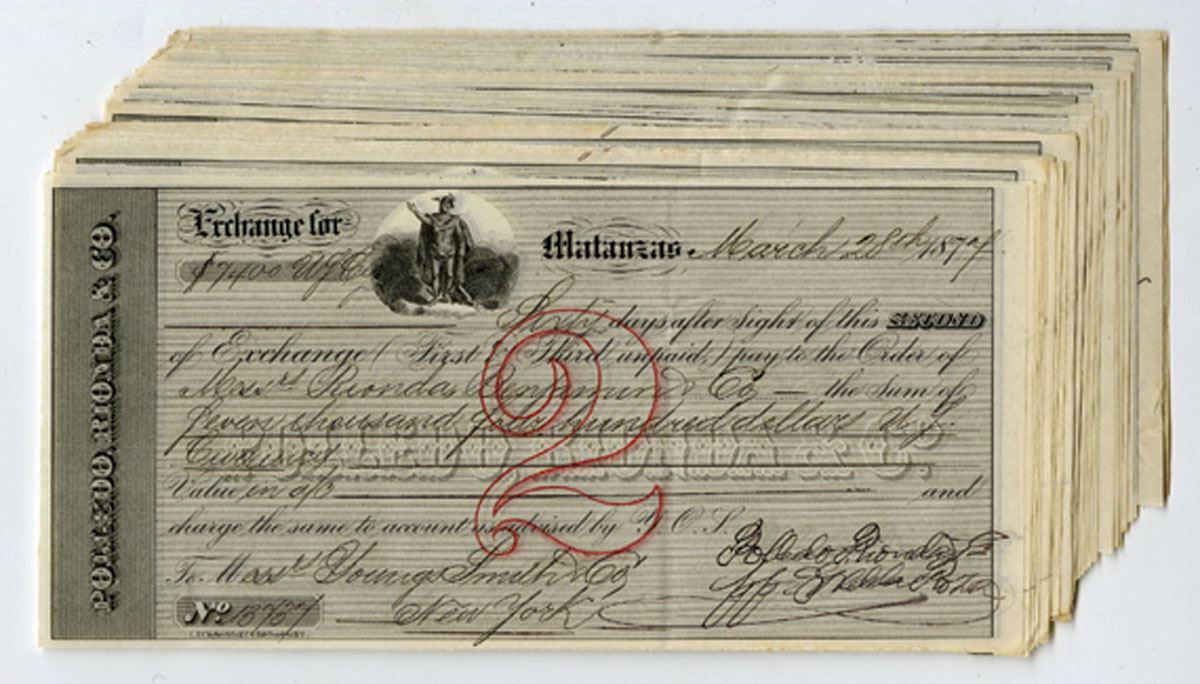 POLLEDO, RIONDA & CO.
Exchange for
$7400 U.S.Cy
Matanzas. March 28th 1874
Sixty days after sight of this SECOND
of Exchange (First & Third unpaid,) pay to the Order of
Messrs Rionda, Benjamin & Co — the Sum of
Seven thousand four hundred dollars U.S.
Currency
POLLEDO, RIONDA & CO.
Value in a/c and
charge the same to account as advised by Y. O. S.
2
Polledo Rionda & Co
To Messrs Young Smith & Co
New York
No 13737